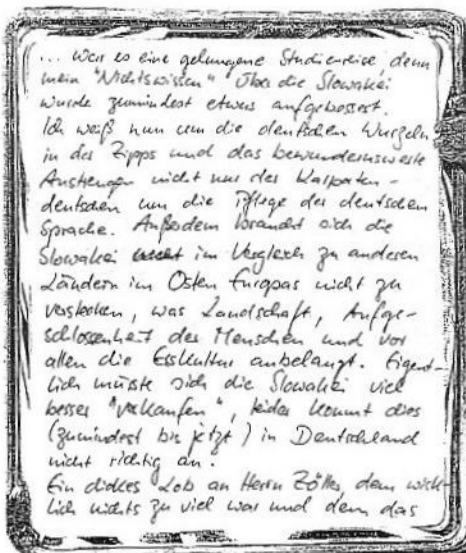 ... war es eine gelungene Studienreise, denn
mein "Nichtswissen" über die Slowakei
wurde zumindest etwas aufgebessert.
Ich weiß nun um die deutschen Wurzeln
in der Zipps und das bewundernswerte
Anstrengen nicht nur der Karpaten-
deutschen um die Pflege der deutschen
Sprache. Außerdem braucht sich die
Slowakei im Vergleich zu anderen
Ländern im Osten Europas nicht zu
verstecken, was Landschaft, Aufge-
schlossenheit der Menschen und vor
allen die Esskultur anbelangt. Eigent-
lich müsste sich die Slowakei viel
besser "verkaufen", leider kommt dies
(zumindest bis jetzt) in Deutschland
nicht richtig an.
Ein dickes Lob an Herrn Zöller, dem wirk-
lich nichts zu viel war und dem das